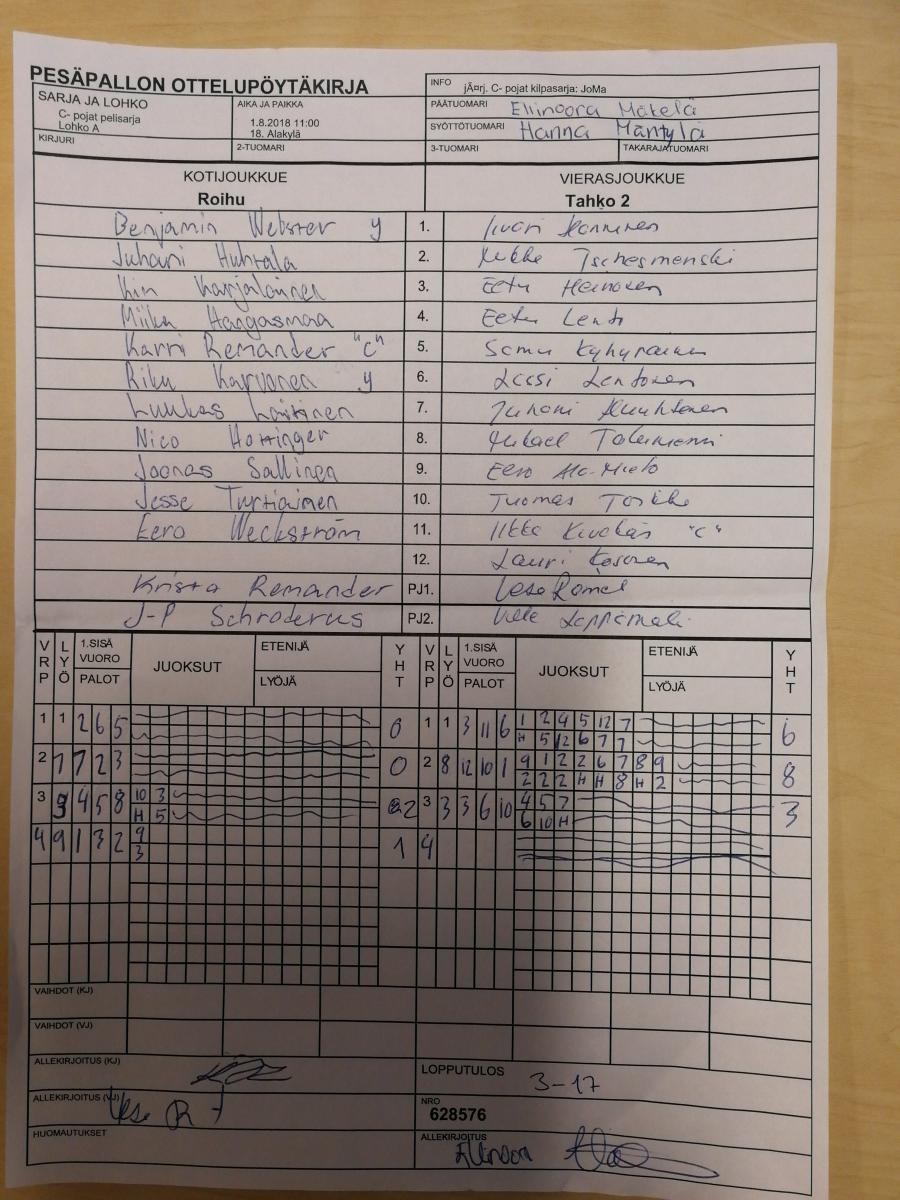 PESÄPALLON OTTELUPÖYTÄKIRJA
INFO jÃ¤rj. C- pojat kilpasarja: JoMa
SARJA JA LOHKO
C- pojat pelisarja
Lohko A
AIKA JA PAIKKA
1.8.2018 11:00
18. Alakylä
PÄÄTUOMARI Ellinoora Mäkelä
SYÖTTÖTUOMARI Hanna Mäntylä
KIRJURI
2-TUOMARI
3-TUOMARI
TAKARAJATUOMARI
KOTIJOUKKUE VIERASJOUKKUE
Roihu Tahko 2
Benjamin Webster y 1.
Juhani Huhtala 2. Tschesmenski
Kim Karjalainen 3. Eetu Heinonen
Miika Hangasmaa 4. Eetu Lehto
Karri Remander "C" 5. Samu
Riku Karvonen y 6. Lassi Lehtonen
Luukas Laitinen 7. Juhani
Nico Hottinger 8. Mikael
Joonas Sallinen 9. Eero Ala-Mielo
Jesse Tyrtiainen 10. Tuomas Torkko
Eero Weckström 11. "C"
12. Lauri Kosonen
Krista Remander PJ1. Vesa Romel
J-P Schroderus PJ2. Ville Leppämäki
VRP LYÖ 1.SISÄ VUORO PALOT JUOKSUT ETENIJÄ LYÖJÄ YHT VRP LYÖ 1.SISÄ VUORO PALOT JUOKSUT ETENIJÄ LYÖJÄ YHT
1 1 2 6 5 0 1 1 3 11 6 1 2 4 5 12 7 6
H 5 12 6 7 7
2 7 7 2 3 0 2 8 12 10 1 9 1 2 2 6 7 8 9 8
2 2 2 H H 8 H 2
3 9 4 5 8 10 3 2 3 3 3 6 10 4 5 7 3
H 5 6 10 H
4 9 1 3 2 9 1 4
3
VAIHDOT (KJ)
VAIHDOT (VJ)
ALLEKIRJOITUS (KJ)
LOPPUTULOS 3-17
ALLEKIRJOITUS (VJ) Vesa R
NRO
628576
HUOMAUTUKSET
ALLEKIRJOITUS Ellinoora